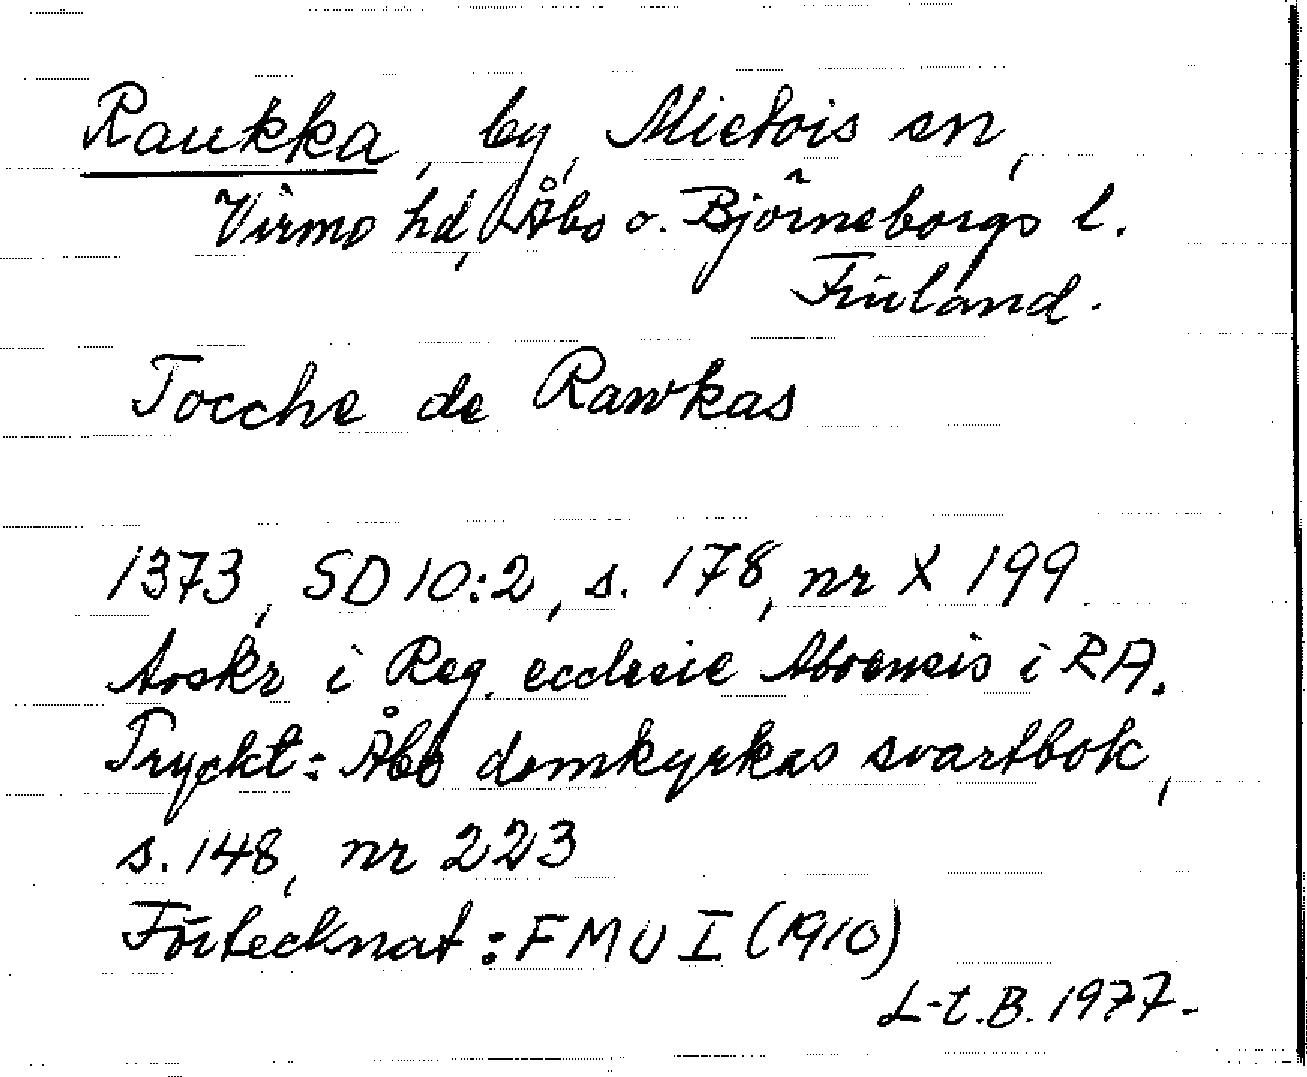 Raukka, by, Mietois sn,
Virmo hd, Åbo o. Björneborgs l.
Finland.
Tocche de Rawkas
1373, SD 10:2, s. 178, nr X 199
Avskr i Reg. ecclesie Aboensis i RA.
Tryckt: Åbo domkyrkas svartbok,
s. 148, nr 223
Förtecknat: FMU I (1910)
L-t.B. 1977.